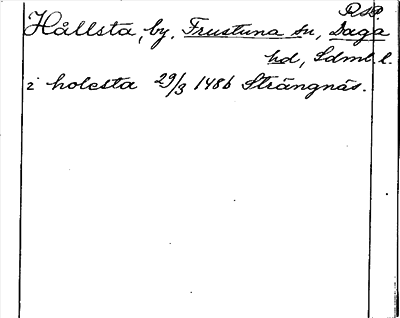 R.s.P.
Hållsta, by, Frustuna sn, Daga
hd, Sdml. l.
i holesta 29/3 1486 Strängnäs.